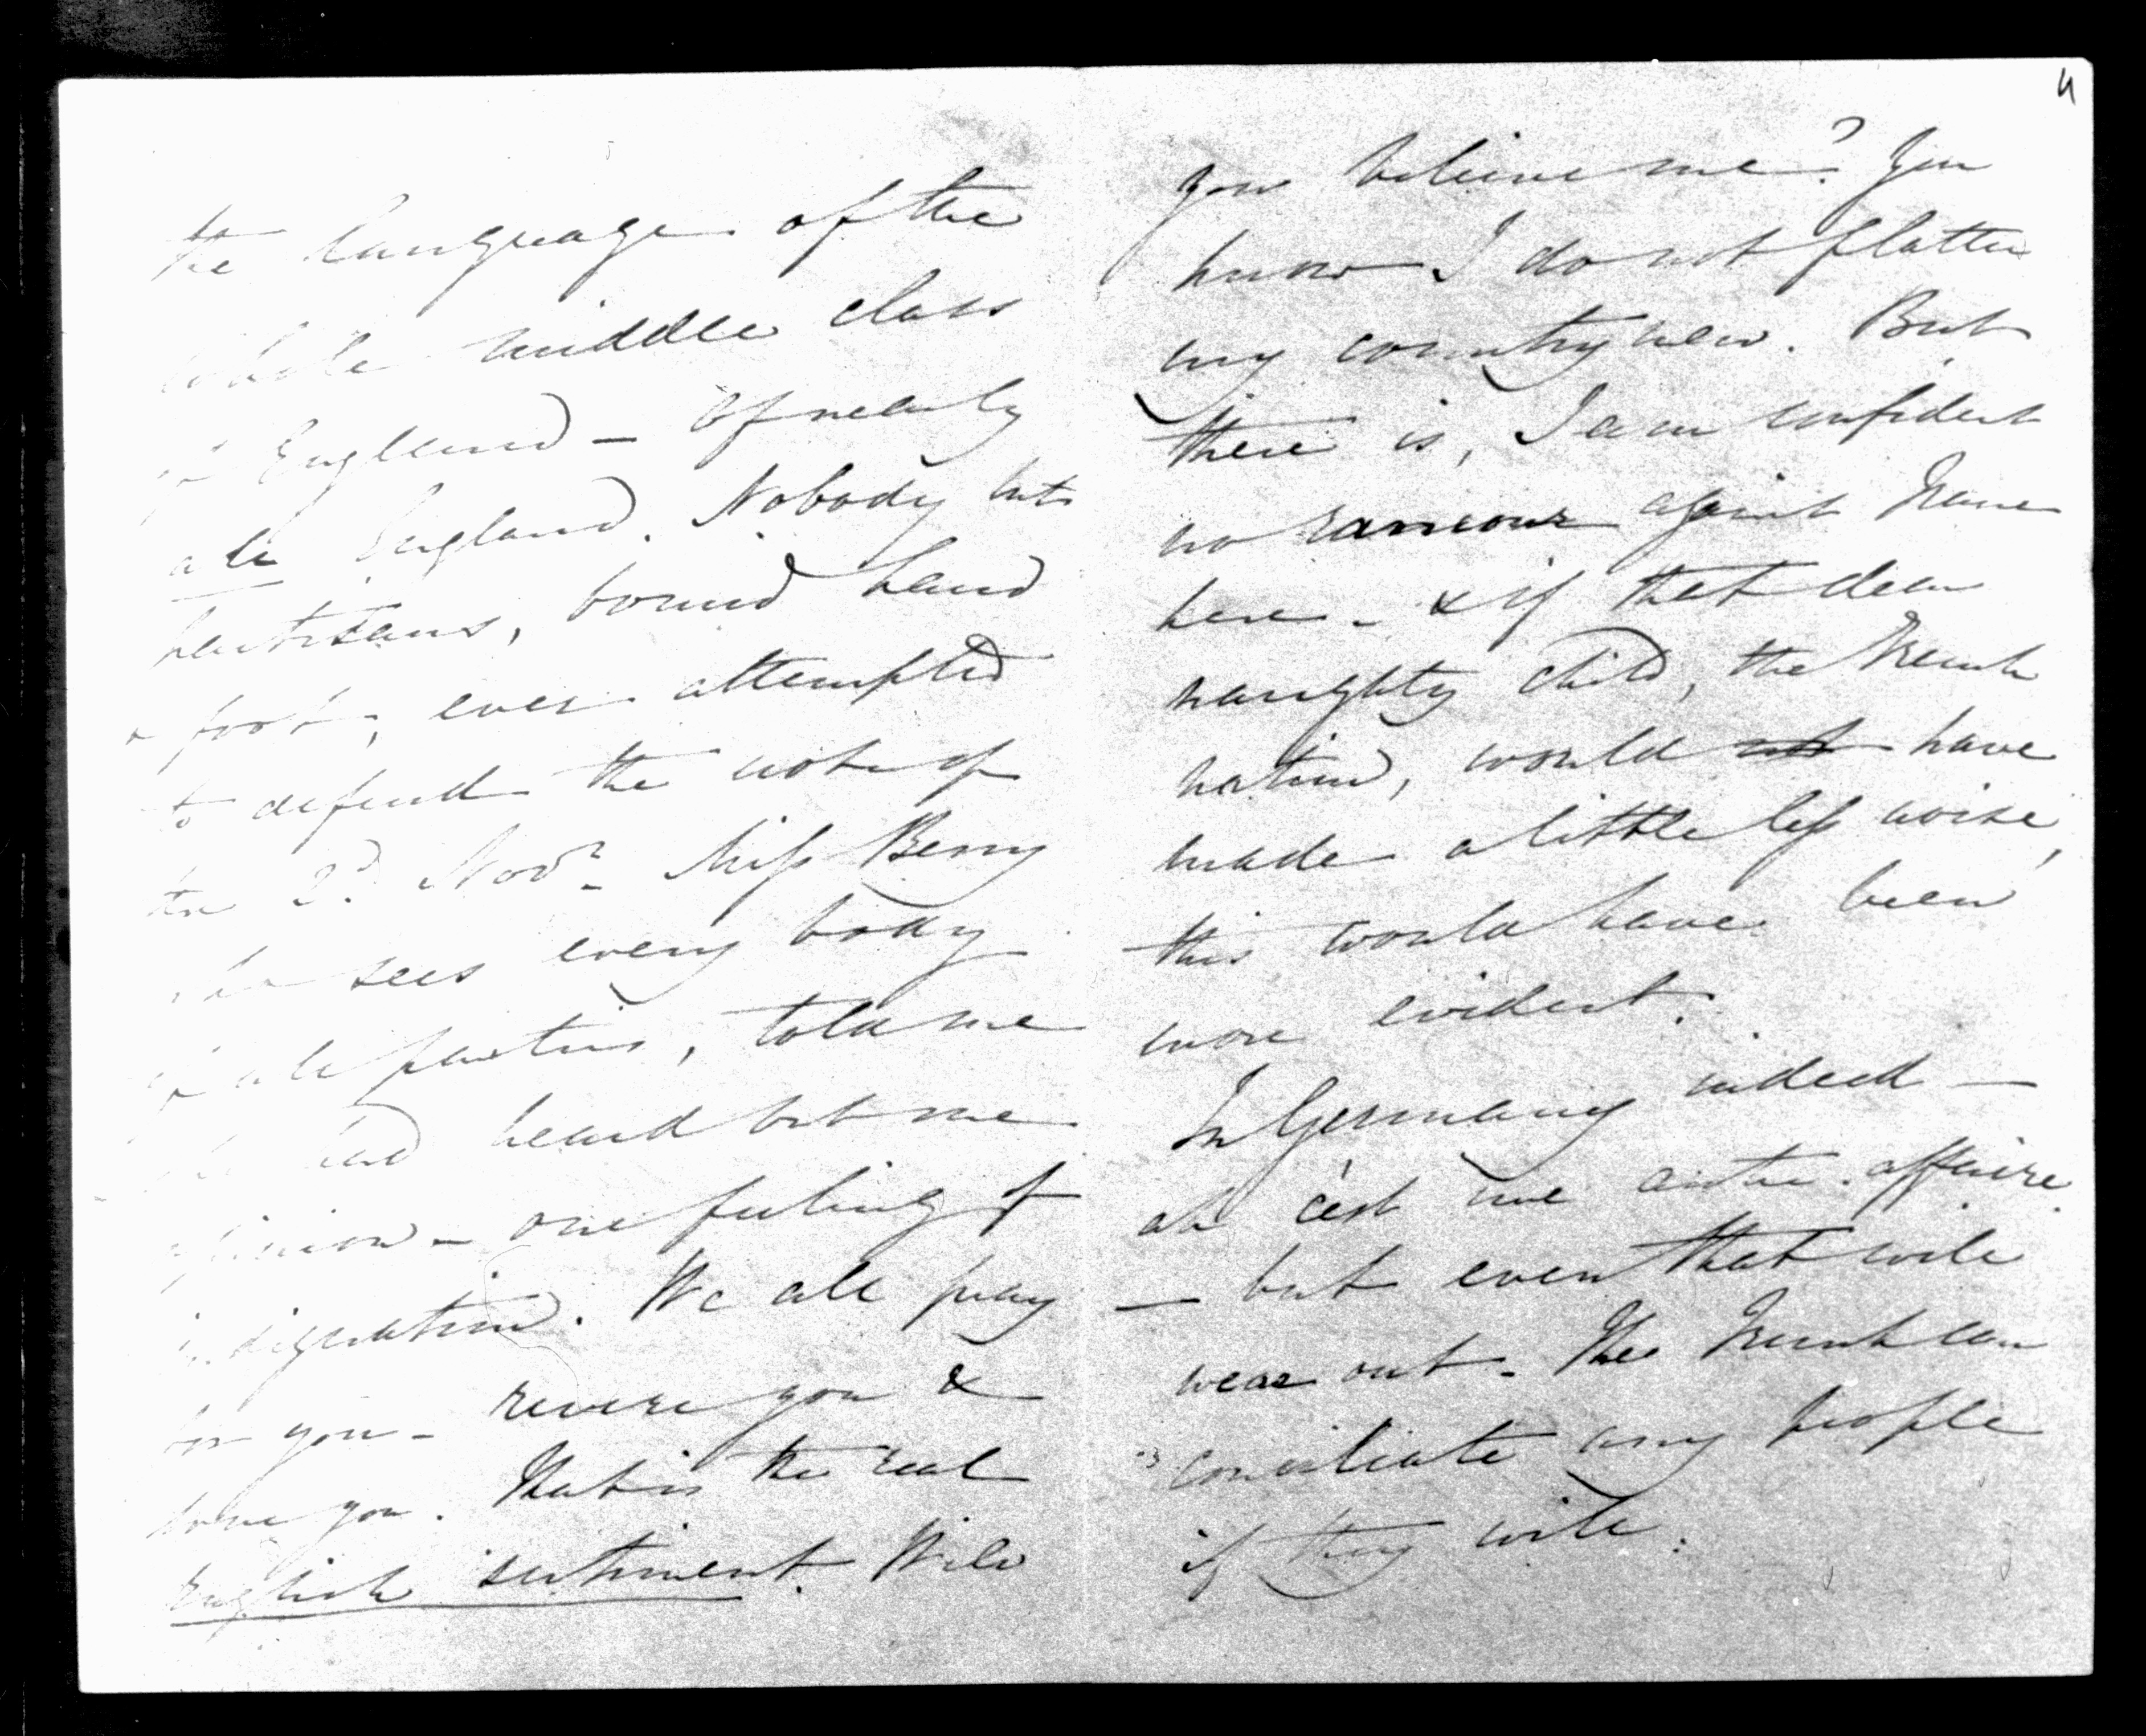 the language of the
whole middle class
of England – of nearly
all England. Nobody but
partisans, bound hand
& foot, ever attempted
to defend the note of
the 2d. Novr. – Miss Berry
who sees every body
of all parties, told me
she had heard but one
opinion – one feeling of
indignation. We all pray
for you – revere you &
love you. That is the real
English sentiment. Will
4
you believe me? You
know I do not flatter
my countrymen. But
there is, I am confident
no rancour against France
here – & if that dear
naughty child, the French
nation, would not have
made a little less noise,
this would have been
more evident.
In Germany indeed —
ah c'est une autre affaire
— but even that will
wear out – The French can
conciliate any people
if they will.